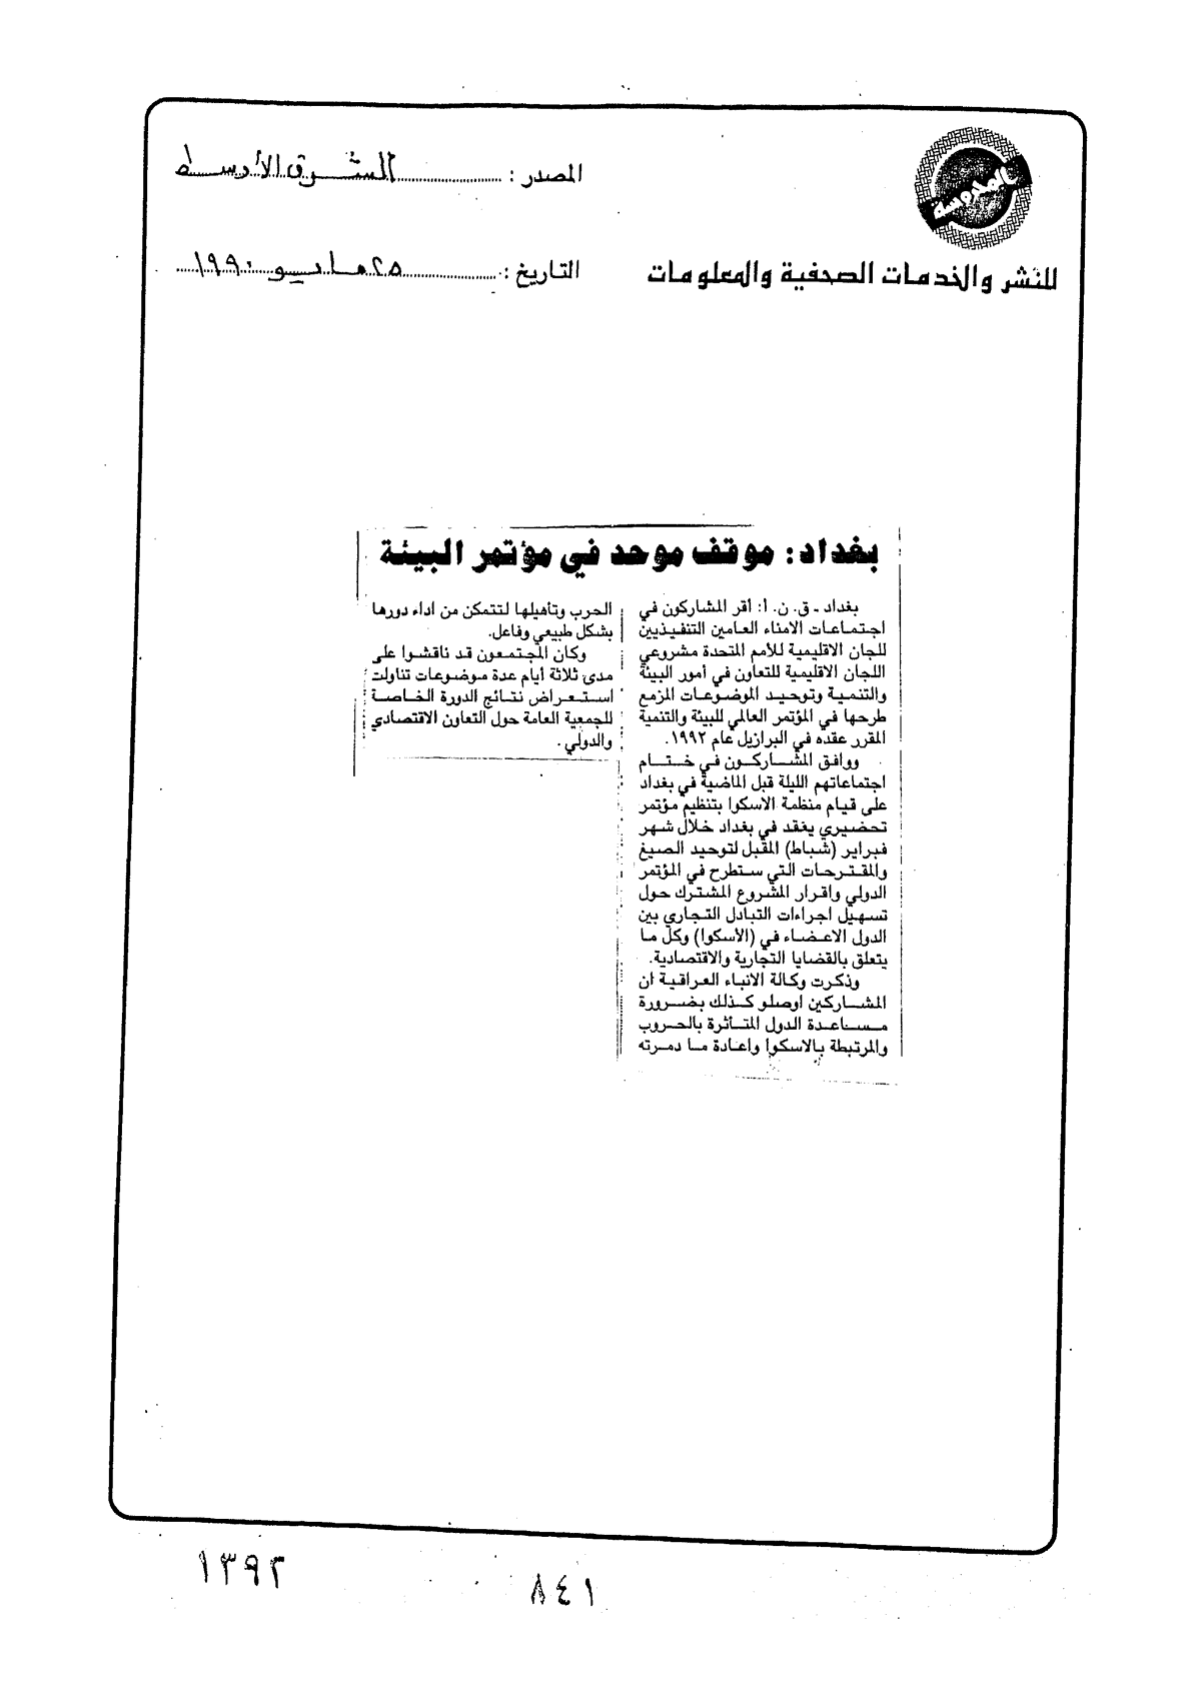 المحروسة
للنشر والخدمات الصحفية والمعلومات
المصدر : الشرق الأوسط
التاريخ : ٢٥ مايو ١٩٩٠
بغداد: موقف موحد في مؤتمر البيئة
بغداد ـ ق. ن. أ: أقر المشاركون في
اجتماعات الامناء العامين التنفيذيين
للجان الاقليمية للأمم المتحدة مشروعي
اللجان الاقليمية للتعاون في أمور البيئة
والتنمية وتوحيد الموضوعات المزمع
طرحها في المؤتمر العالمي للبيئة والتنمية
المقرر عقده في البرازيل عام ١٩٩٢.
ووافق المشاركون في ختام
اجتماعاتهم الليلة قبل الماضية في بغداد
على قيام منظمة الاسكوا بتنظيم مؤتمر
تحضيري يعقد في بغداد خلال شهر
فبراير (شباط) المقبل لتوحيد الصيغ
والمقترحات التي ستطرح في المؤتمر
الدولي واقرار المشروع المشترك حول
تسهيل اجراءات التبادل التجاري بين
الدول الاعضاء في (الأسكوا) وكل ما
يتعلق بالقضايا التجارية والاقتصادية.
وذكرت وكالة الانباء العراقية ان
المشاركين اوصلو كذلك بضرورة
مساعدة الدول المتأثرة بالحروب
والمرتبطة بالاسكوا واعادة ما دمرته
الحرب وتأهيلها لتتمكن من اداء دورها
بشكل طبيعي وفاعل.
وكان المجتمعون قد ناقشوا على
مدى ثلاثة أيام عدة موضوعات تناولت
استعراض نتائج الدورة الخاصة
للجمعية العامة حول التعاون الاقتصادي
والدولي.
١٣٩٢
٨٤١